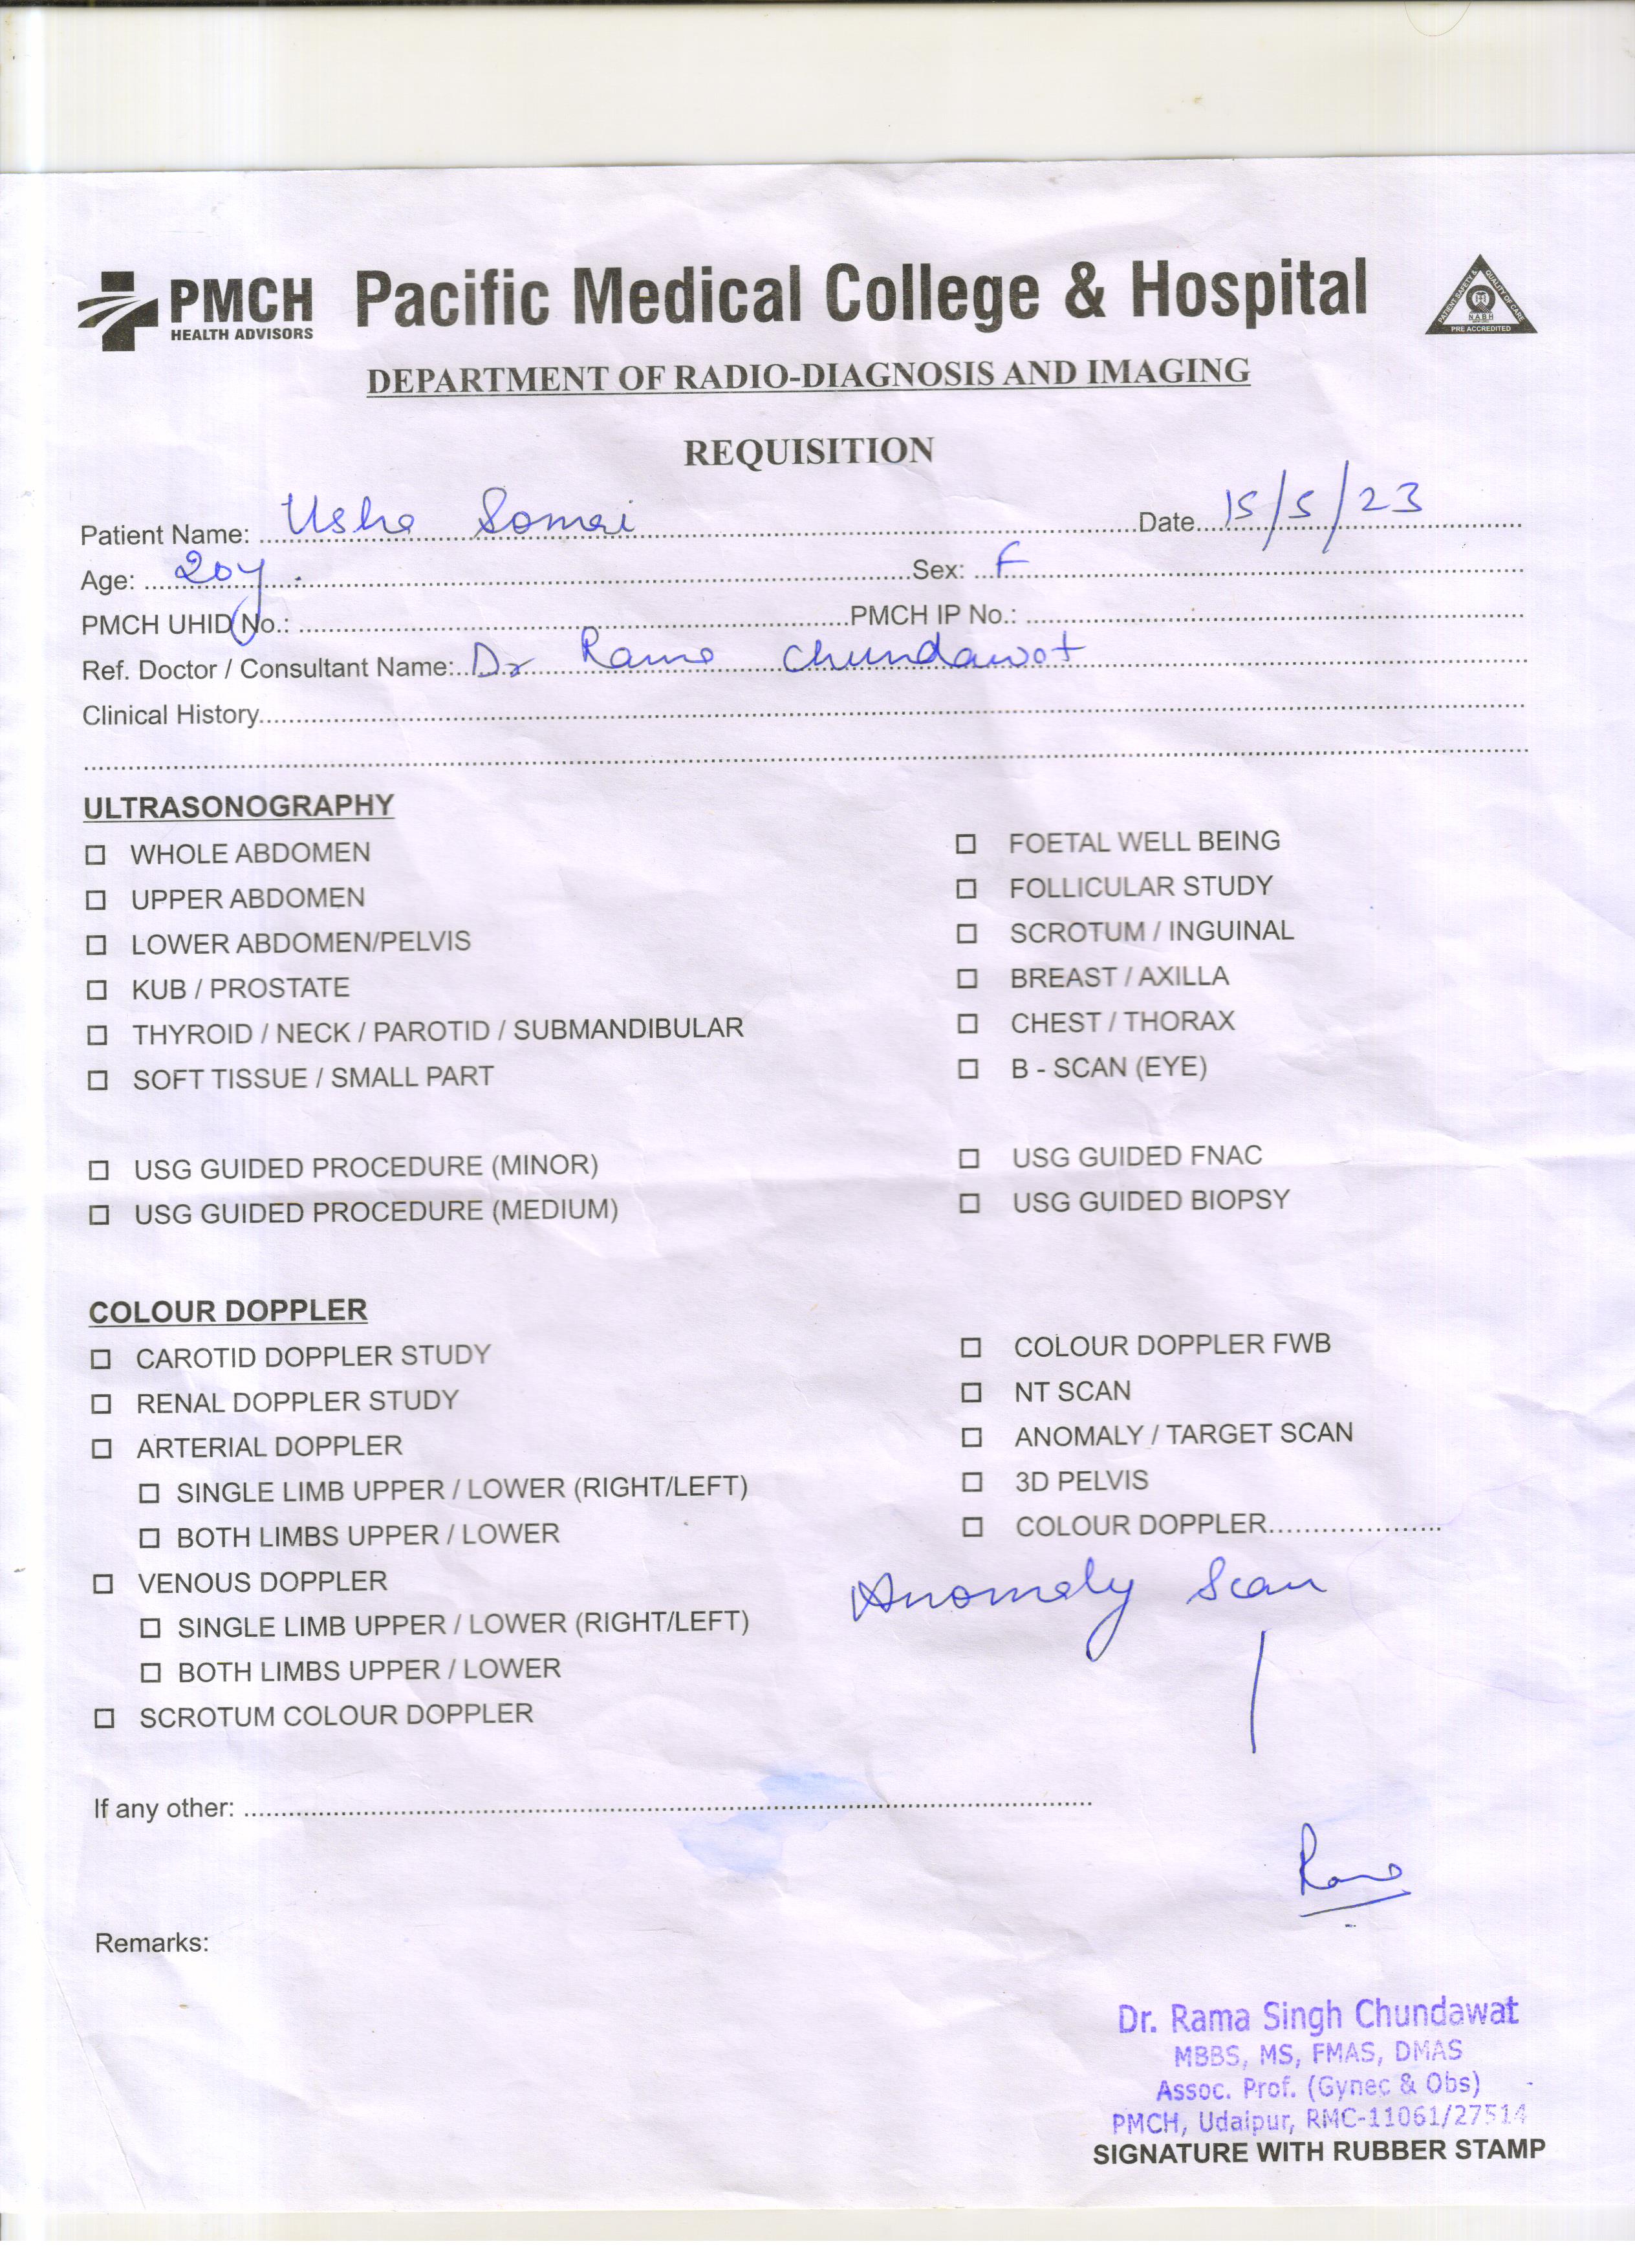 PMCH
HEALTH ADVISORS
Pacific Medical College & Hospital
PATIENT SAFETY & QUALITY OF CARE
NABH
PRE ACCREDITED
DEPARTMENT OF RADIO-DIAGNOSIS AND IMAGING
REQUISITION
Patient Name: Usha Somai Date 15/5/23
Age: 20y Sex: F
PMCH UHID No.: PMCH IP No.:
Ref. Doctor / Consultant Name: Dr Rama Chundawat
Clinical History
ULTRASONOGRAPHY
WHOLE ABDOMEN
UPPER ABDOMEN
LOWER ABDOMEN/PELVIS
KUB / PROSTATE
THYROID / NECK / PAROTID / SUBMANDIBULAR
SOFT TISSUE / SMALL PART
FOETAL WELL BEING
FOLLICULAR STUDY
SCROTUM / INGUINAL
BREAST / AXILLA
CHEST / THORAX
B - SCAN (EYE)
USG GUIDED PROCEDURE (MINOR)
USG GUIDED PROCEDURE (MEDIUM)
USG GUIDED FNAC
USG GUIDED BIOPSY
COLOUR DOPPLER
CAROTID DOPPLER STUDY
RENAL DOPPLER STUDY
ARTERIAL DOPPLER
SINGLE LIMB UPPER / LOWER (RIGHT/LEFT)
BOTH LIMBS UPPER / LOWER
VENOUS DOPPLER
SINGLE LIMB UPPER / LOWER (RIGHT/LEFT)
BOTH LIMBS UPPER / LOWER
SCROTUM COLOUR DOPPLER
COLOUR DOPPLER FWB
NT SCAN
ANOMALY / TARGET SCAN
3D PELVIS
COLOUR DOPPLER
Anomaly Scan
If any other:
Rama
Remarks:
Dr. Rama Singh Chundawat
MBBS, MS, FMAS, DMAS
Assoc. Prof. (Gynec & Obs)
PMCH, Udaipur, RMC-11061/27514
SIGNATURE WITH RUBBER STAMP